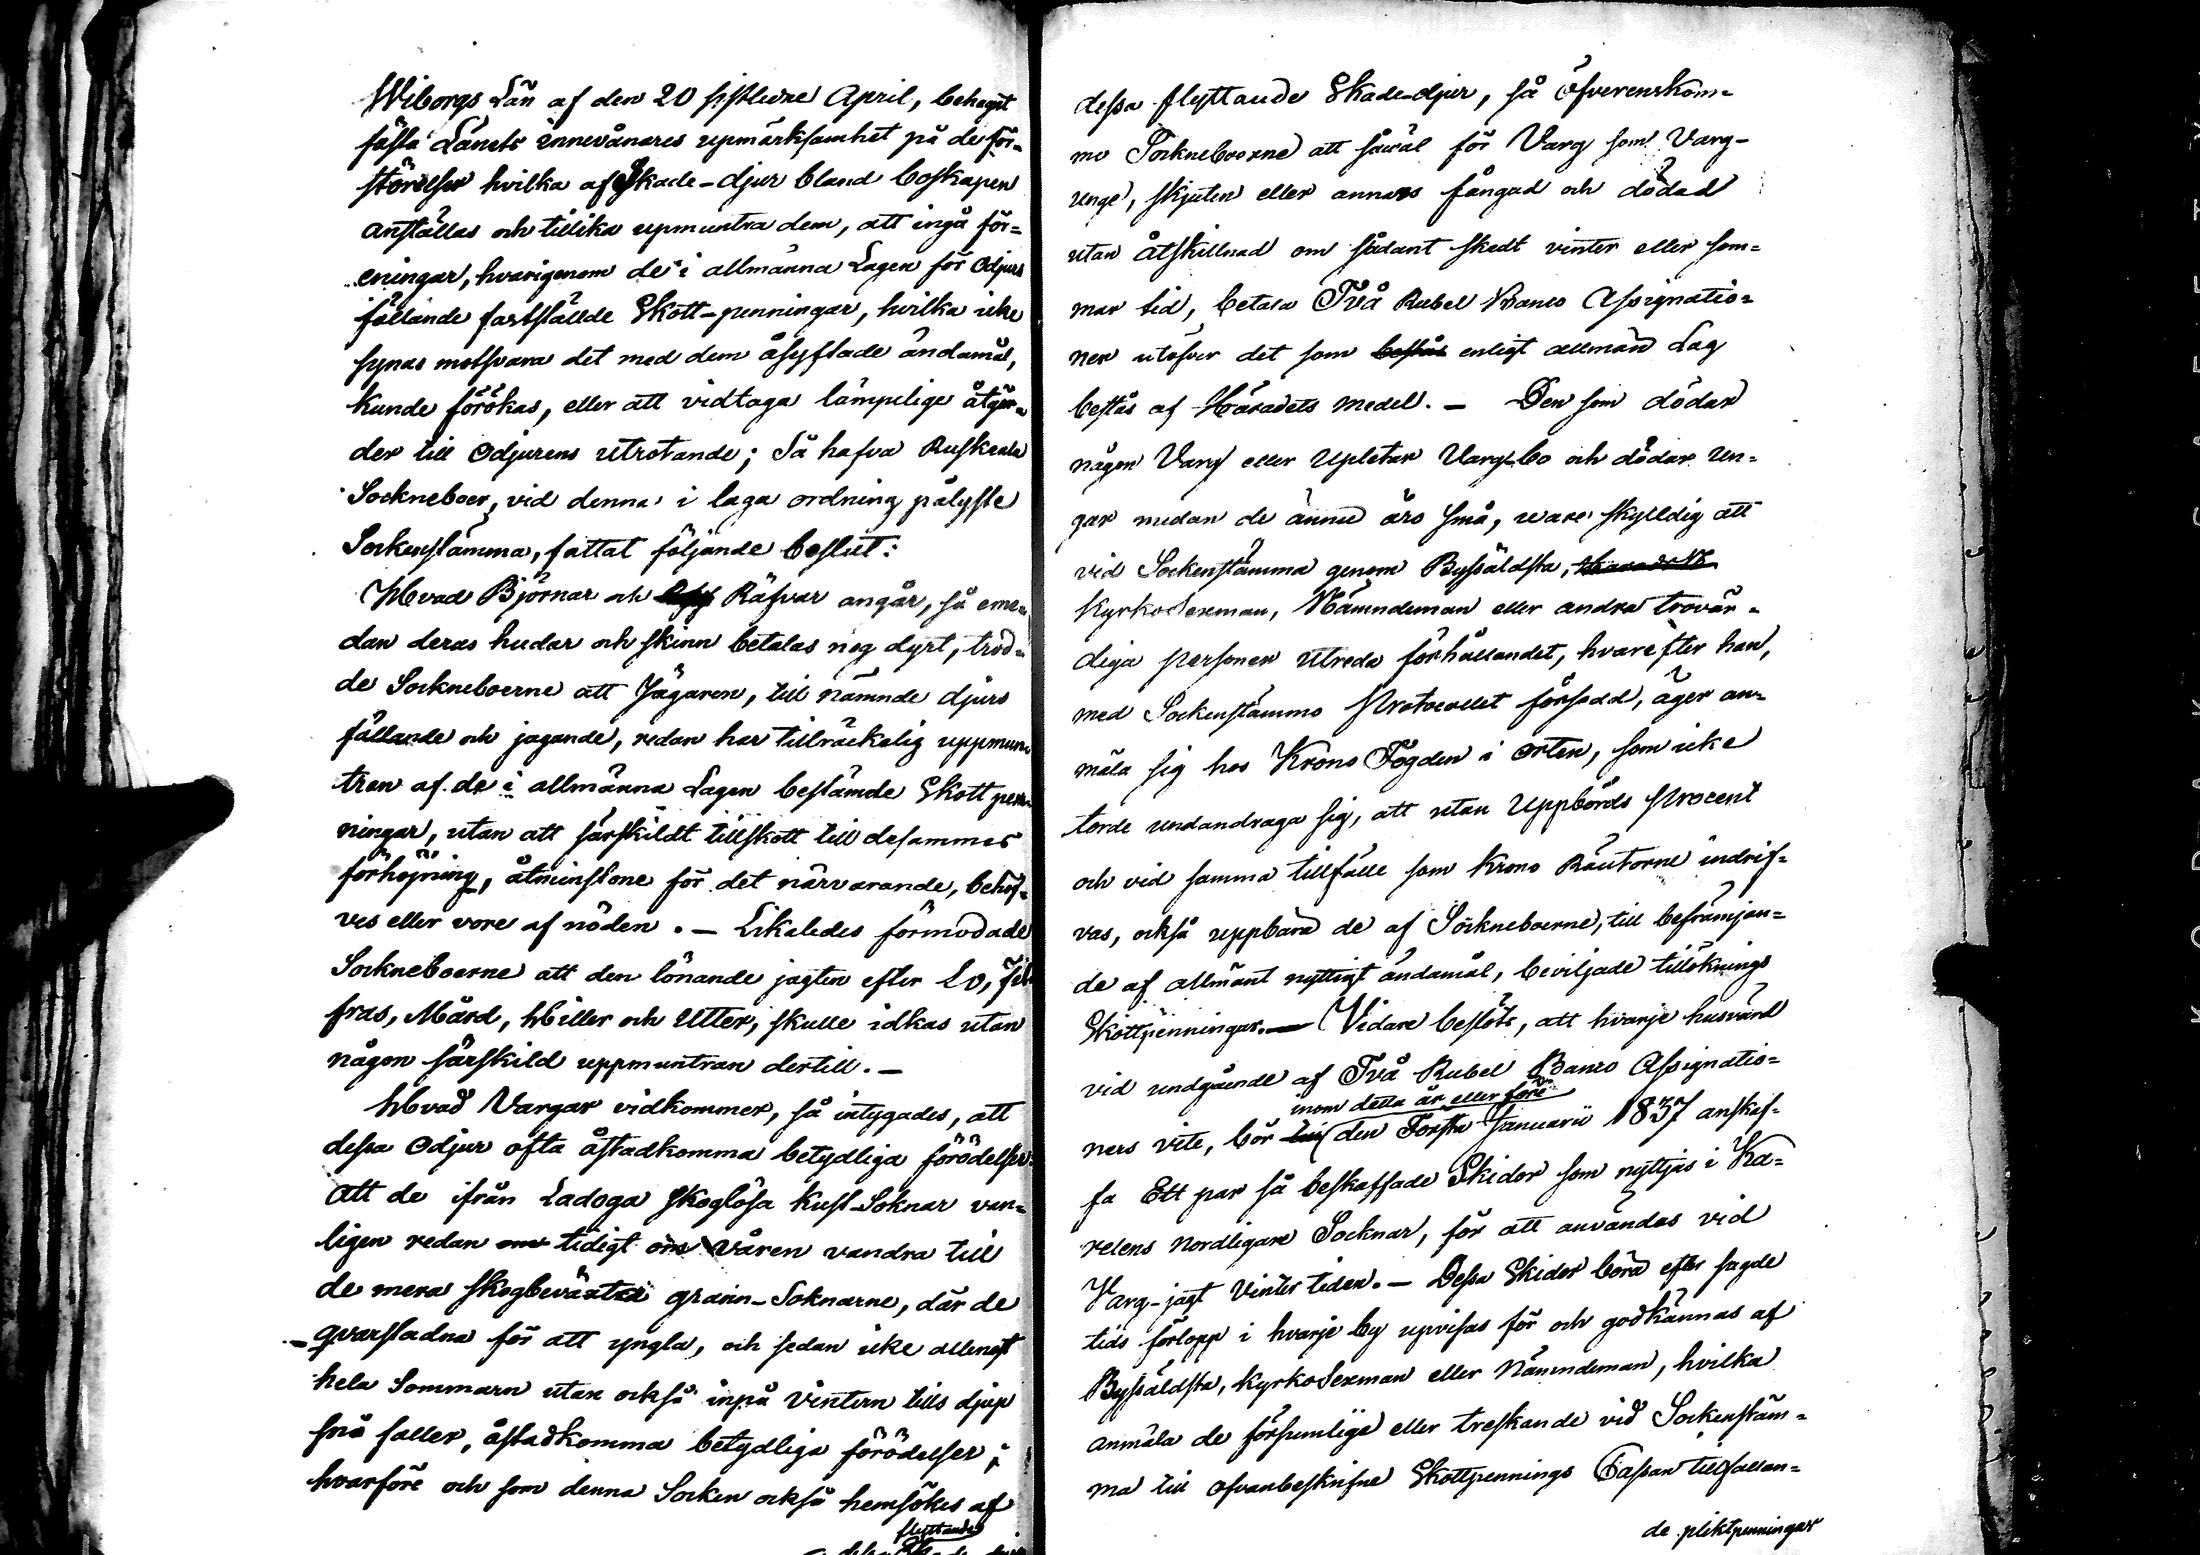 Wiborgs Län af den 20 sistledne April, behagat
fästa Länets innevånares upmärksamhet på de för-
störelser hvilka af Skade-djur bland boskapen
anställas och tillika upmuntra dem, att ingå för=
eningar, hvarigenom de i allmänna Lagen för Odjurs
fällande fastställde Skott-penningar, hvilka icke
synas motsvara det med dem åsyftade ändamål,
kunde förökas, eller att vidtaga lämpelige åtgär=
der till Odjurens utrotande; Så hafva Ruskeala
Sockneboer, vid denna i laga ordning pålyste
Sockenstämma, fattat följande beslut:
Hvad Björnar och Räfvar angår, så eme=
dan deras hudar och skinn betalas nog dyrt, trod=
de Sockneboerne att Jägaren, till nämnde djurs
fällande och jagande, redan har tillräckelig uppmun=
tran af de i allmänna Lagen bestämde Skott pen=
ningar, utan att särskildt tillskott till desammas
förhöjning, åtminstone för det närvarande, behöf=
ves eller vore af nöden. — Likaledes förmodade
Sockneboerne att den lönande jagten efter Lo, Fil
fras, Mård, Hiller och Utter, skulle idkas utan
någon särskild uppmuntran dertill. —
Hvad Vargar vidkommer, så intygades, att
dessa Odjur ofta åstadkomma betydliga förödelser
att de ifrån Ladoga skoglösa kust-Soknar van=
ligen redan tidigt om våren vandra till
de mera skogbeväxta grann-Soknarne, där de
qvarstadna för att yngla, och sedan icke allenast
hela Sommarn utan också inpå Vintern tills djup
snö faller, åstadkomma betydliga förödelser;
hvarföre och som denna Socken också hemsökes af
flyttande
dessa flyttande Skade-djur, så öfverenskom=
mo Sockneboerne att såväl för Varg som Varg-
unge, skjuten eller annars fångad och dödad
utan åtskillnad om sådant skedt vinter eller som=
mar tid, betala Två Rubel Banco Assignatio=
ner utöfver det som bestås enligt allmän Lag
bestås af Häradets medel. — Den som dödar
någon Varg eller upletar Varg-bo och dödar un=
gar medan de ännu äro små, ware skylldig att
vid Sockenstämma genom Byssäldsta,
Kyrkosexman, Nämndeman eller andra trovär=
diga personer utreda förhållandet, hvarefter han,
med Sockenstämmo Protocollet försedd, äger an=
mäla sig hos Krono Fogden i orten, som icke
torde undandraga sig, att utan Uppbörds procent
och vid samma tillfälle som Krono Räntorne indrif=
vas, också uppbära de af Sockneboerne, till befrämjan=
de af allmänt nyttigt ändamål, beviljade tillöknings
Skottpenningar. — Vidare beslöts, att hvarje husvärd
vid undgående af Två Rubel Banco Assignatio=
inom detta år eller före
ners vite, bör den Första Januarii 1837 anskaf=
fa Ett par så beskaffade Skidor som nyttjas i Ka=
relens nordligare Socknar, för att användas vid
Varg-jagt Vinter tiden. — Dessa Skidor böra efter sagde
tids förlopp i hvarje by upvisas för och godkännas af
Byssäldsta, Kyrkosexman eller Nämndeman, hvilka
anmäla de försumlige eller treskande vid Sockenstäm=
ma till ofvanbeskrifne Skottpennings Cassan tillfallan=
de pliktpenningar